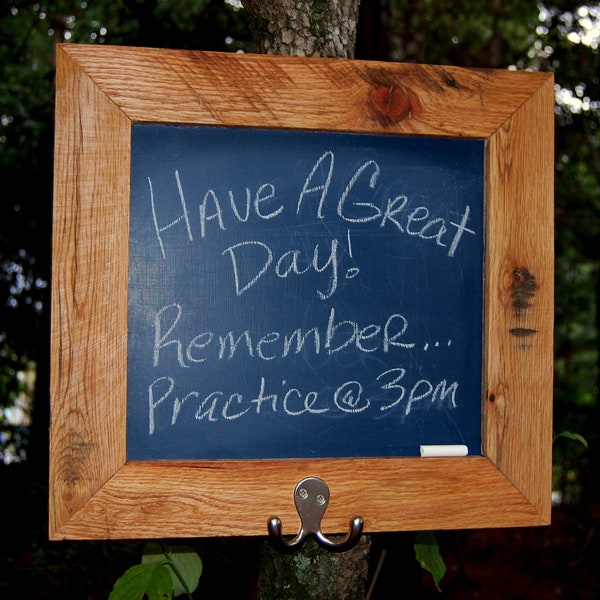 Have A Great
Day!
Remember...
Practice @ 3pm